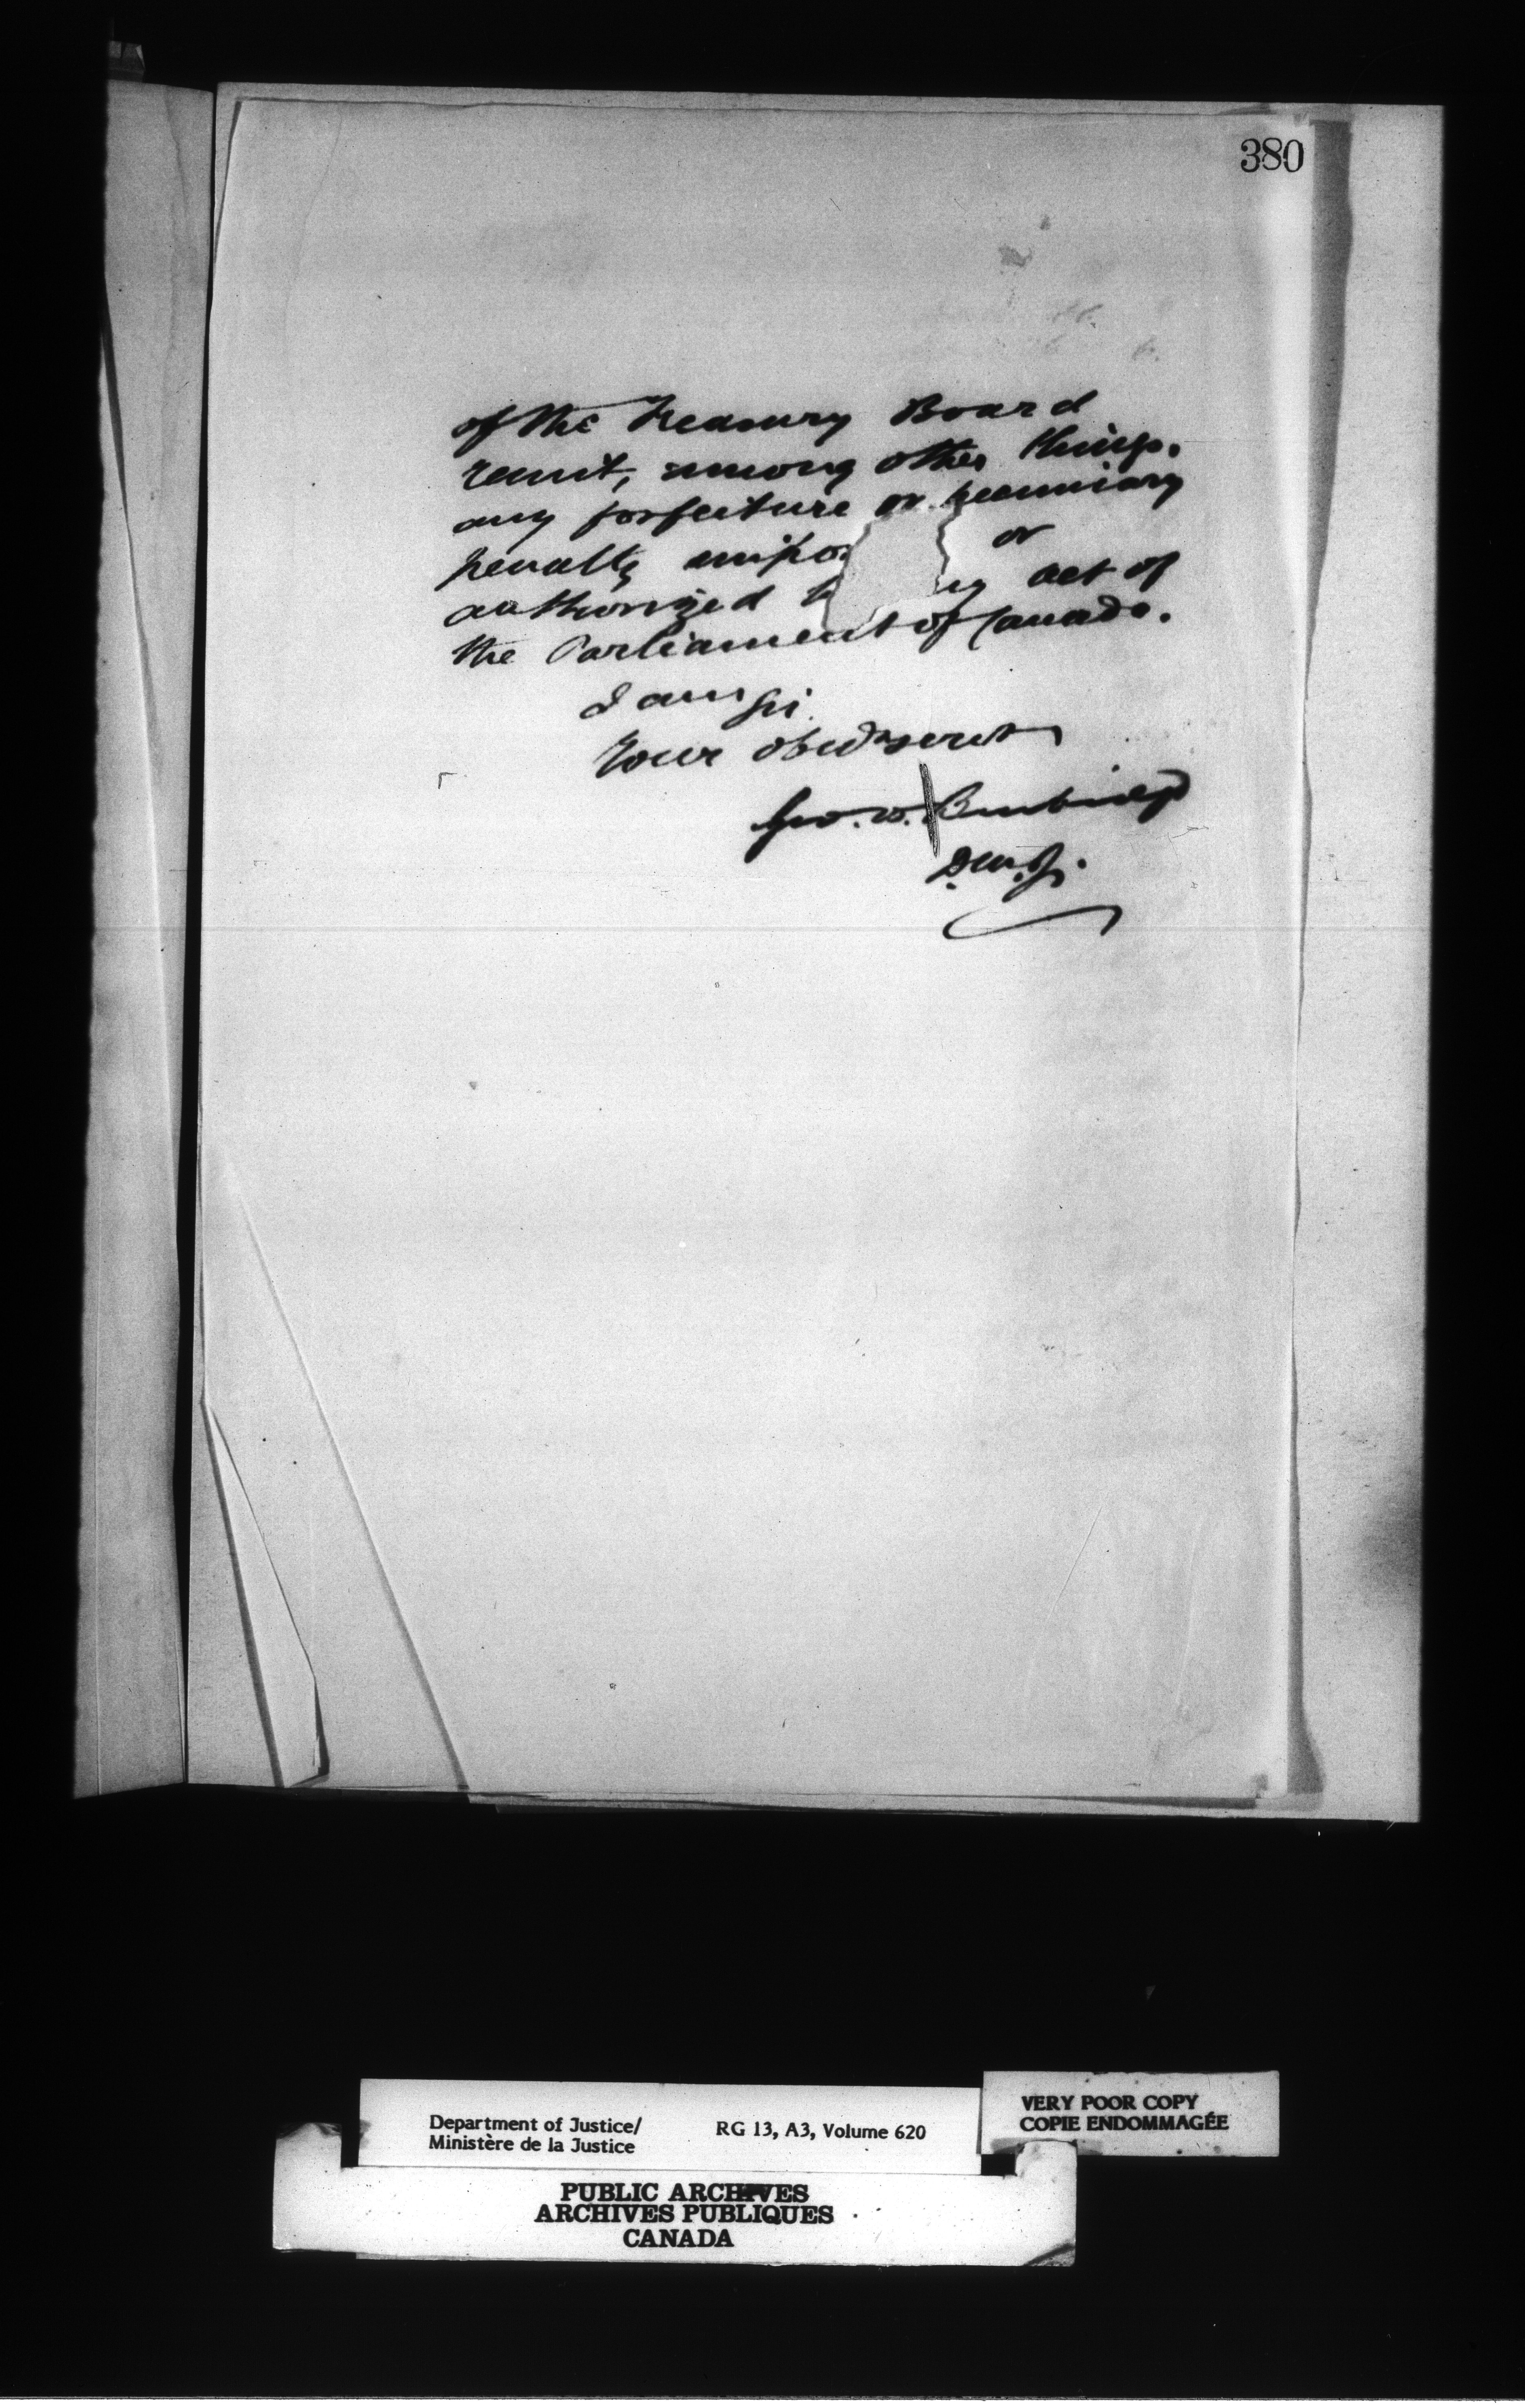 380
of the Treasury Board
remit, among other things,
any forfeiture or pecuniary
penalty impo or
authorized b ny act of
the Parliament of Canada.
I am Sir
Your obed servt
Geo. W. Burbidge
D.M.J.
Department of Justice/
Ministère de la Justice
RG 13, A3, Volume 620
VERY POOR COPY
COPIE ENDOMMAGÉE
PUBLIC ARCHIVES
ARCHIVES PUBLIQUES
CANADA